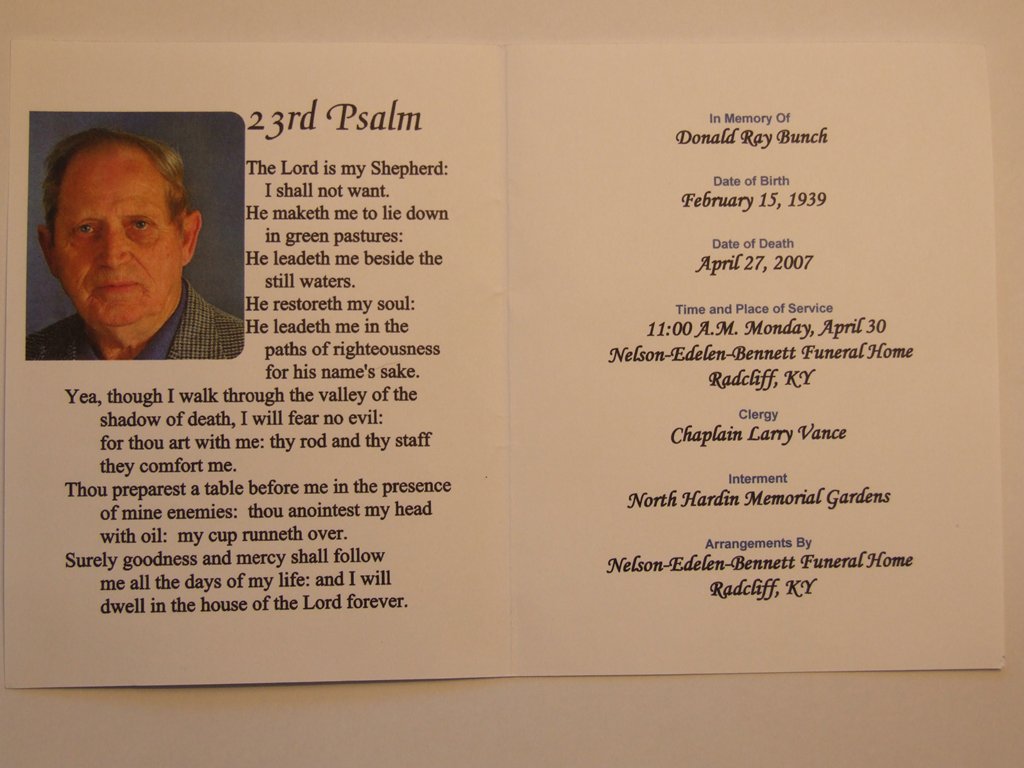 23rd Psalm
The Lord is my Shepherd:
I shall not want.
He maketh me to lie down
in green pastures:
He leadeth me beside the
still waters.
He restoreth my soul:
He leadeth me in the
paths of righteousness
for his name's sake.
Yea, though I walk through the valley of the
shadow of death, I will fear no evil:
for thou art with me: thy rod and thy staff
they comfort me.
Thou preparest a table before me in the presence
of mine enemies: thou anointest my head
with oil: my cup runneth over.
Surely goodness and mercy shall follow
me all the days of my life: and I will
dwell in the house of the Lord forever.
In Memory Of
Donald Ray Bunch
Date of Birth
February 15, 1939
Date of Death
April 27, 2007
Time and Place of Service
11:00 A.M. Monday, April 30
Nelson-Edelen-Bennett Funeral Home
Radcliff, KY
Clergy
Chaplain Larry Vance
Interment
North Hardin Memorial Gardens
Arrangements By
Nelson-Edelen-Bennett Funeral Home
Radcliff, KY